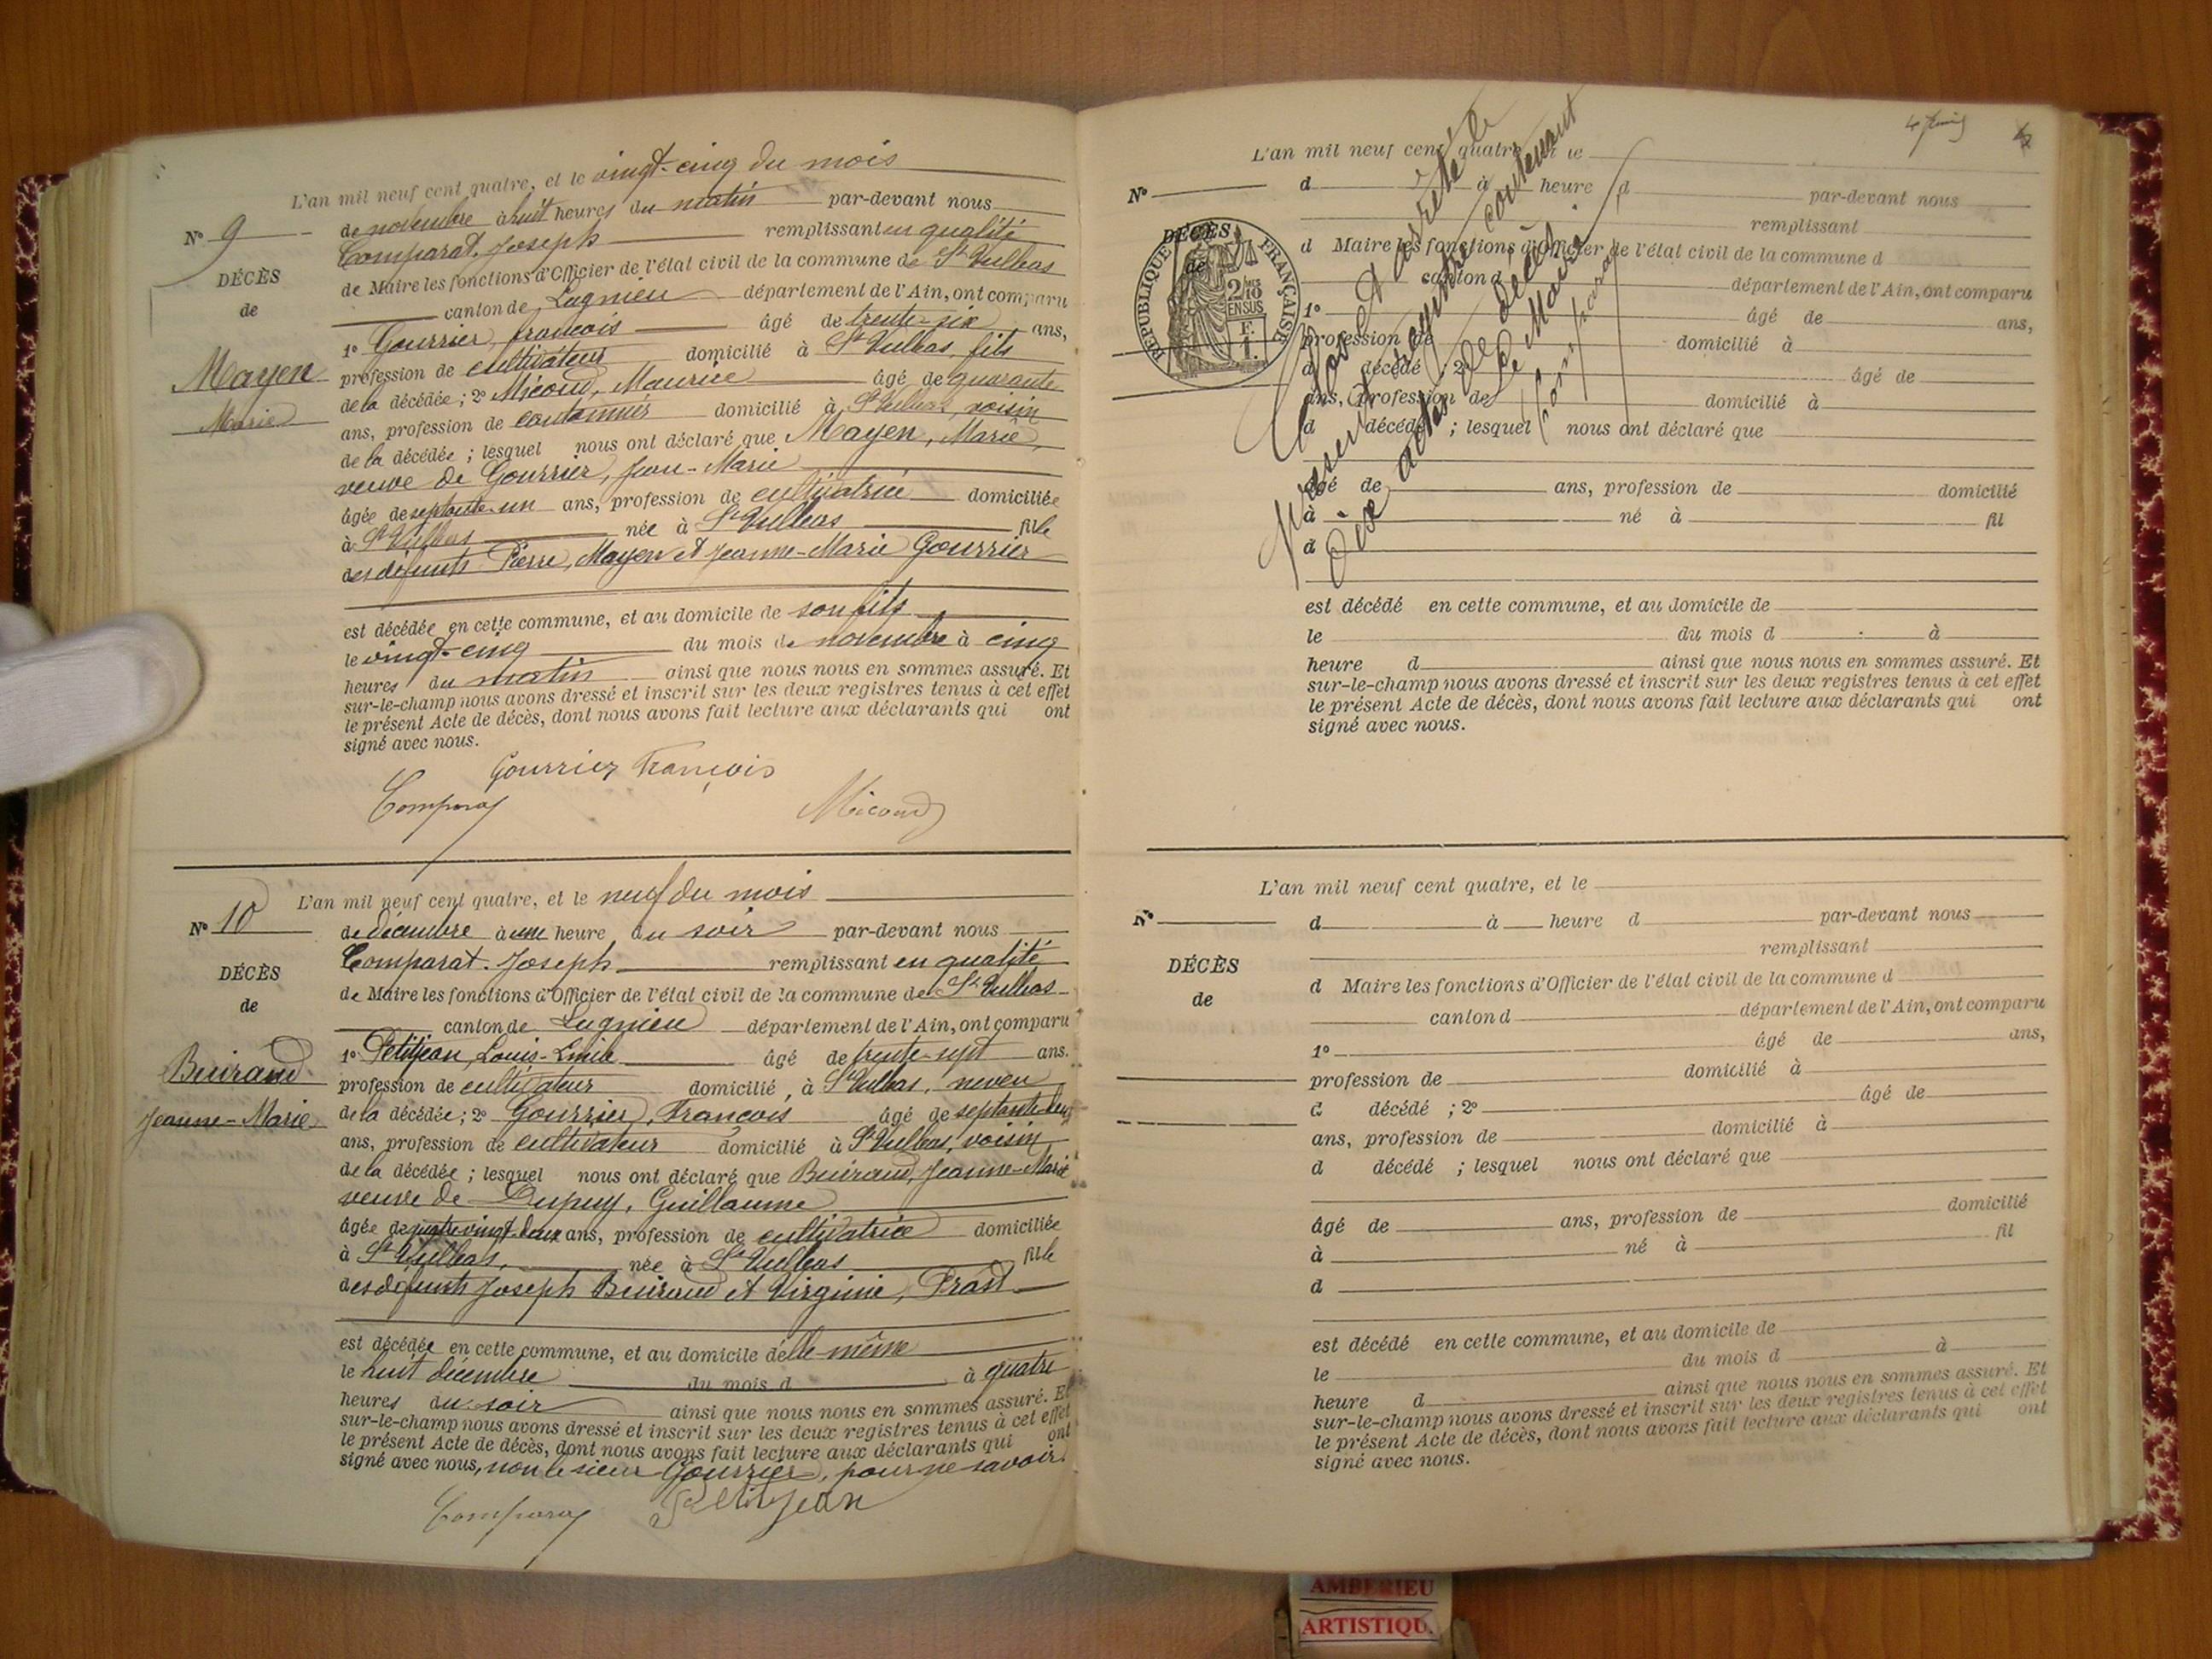 L'an mil neuf cent quatre, et le vingt-cinq du mois
N° 9
de novembre à huit heures du matin par-devant nous
Comparat, Joseph remplissant en qualité
DÉCÈS
de Maire les fonctions d'Officier de l'état civil de la commune de St Vulbas
de
canton de Lagnieu département de l'Ain, ont comparu
1° Gourrier, françois âgé de trente-six ans,
Mayen
profession de cultivateur domicilié à St Vulbas, fils
de la décédée ; 2° Micoud, Maurice âgé de quarante
Marie
ans, profession de cantonnier domicilié à St Vulbas, voisin
de la décédée ; lesquel nous ont déclaré que Mayen, Marie,
veuve de Gourrier, Jean-Marie
âgée de septante-un ans, profession de cultivatrice domiciliée
à St Vulbas née à St Vulbas fille
des défunts Pierre, Mayen et Jeanne-Marie Gourrier
est décédée en cette commune, et au domicile de son fils
le vingt-cinq du mois de novembre à cinq
heures du matin ainsi que nous nous en sommes assuré. Et
sur-le-champ nous avons dressé et inscrit sur les deux registres tenus à cet effet
le présent Acte de décès, dont nous avons fait lecture aux déclarants qui ont
signé avec nous.
Gourrier François
Comparat
Micoud
L'an mil neuf cent quatre, et le neuf du mois
N° 10
de décembre à une heure du soir par-devant nous
Comparat, Joseph remplissant en qualité
DÉCÈS
de Maire les fonctions d'Officier de l'état civil de la commune de St Vulbas
de
canton de Lagnieu département de l'Ain, ont comparu
1° Petitjean, Louis-Emile âgé de trente-sept ans.
Buirand
profession de cultivateur domicilié à St Vulbas, neveu
Jeanne-Marie
de la décédée ; 2° Gourrier, François âgé de septante-deux
ans, profession de cultivateur domicilié à St Vulbas, voisin
de la décédée ; lesquel nous ont déclaré que Buirand, Jeanne-Marie
veuve de Dupuy, Guillaume
âgée de quatre vingt-deux ans, profession de cultivatrice domiciliée
à St Vulbas, née à St Vulbas fille
des défunts Joseph Buirand et Virginie, Prast
est décédée en cette commune, et au domicile d'elle-même
le huit décembre du mois d à quatre
heures du soir ainsi que nous nous en sommes assuré. Et
sur-le-champ nous avons dressé et inscrit sur les deux registres tenus à cet effet
le présent Acte de décès, dont nous avons fait lecture aux déclarants qui ont
signé avec nous, non le sieur Gourrier, pour ne savoir.
Comparat Petitjean
L'an mil neuf cent quatre le
N° d à heure d par-devant nous
remplissant
DÉCÈS
de
d Maire les fonctions d'Officier de l'état civil de la commune d
canton d département de l'Ain, ont comparu
RÉPUBLIQUE FRANÇAISE
2/10 EN SUS
F. 1.
1° âgé de ans,
profession de domicilié à
d décédé ; 2° âgé de
ans, profession de domicilié à
d décédé ; lesquel nous ont déclaré que
âgé de ans, profession de domicilié
à né à fil
d
Clos et arrêté le
présent registre contenant
dix actes de décès.
Le Maire
Comparat
est décédé en cette commune, et au domicile de
le du mois d à
heure d ainsi que nous nous en sommes assuré. Et
sur-le-champ nous avons dressé et inscrit sur les deux registres tenus à cet effet
le présent Acte de décès, dont nous avons fait lecture aux déclarants qui ont
signé avec nous.
L'an mil neuf cent quatre, et le
N° d à heure d par-devant nous
remplissant
DÉCÈS
d Maire les fonctions d'Officier de l'état civil de la commune d
de
canton d département de l'Ain, ont comparu
1° âgé de ans,
profession de domicilié à
d décédé ; 2° âgé de
ans, profession de domicilié à
d décédé ; lesquel nous ont déclaré que
âgé de ans, profession de domicilié
à né à fil
d
est décédé en cette commune, et au domicile de
le du mois d à
heure d ainsi que nous nous en sommes assuré. Et
sur-le-champ nous avons dressé et inscrit sur les deux registres tenus à cet effet
le présent Acte de décès, dont nous avons fait lecture aux déclarants qui ont
signé avec nous.
AMBERIEU
ARTISTIQU